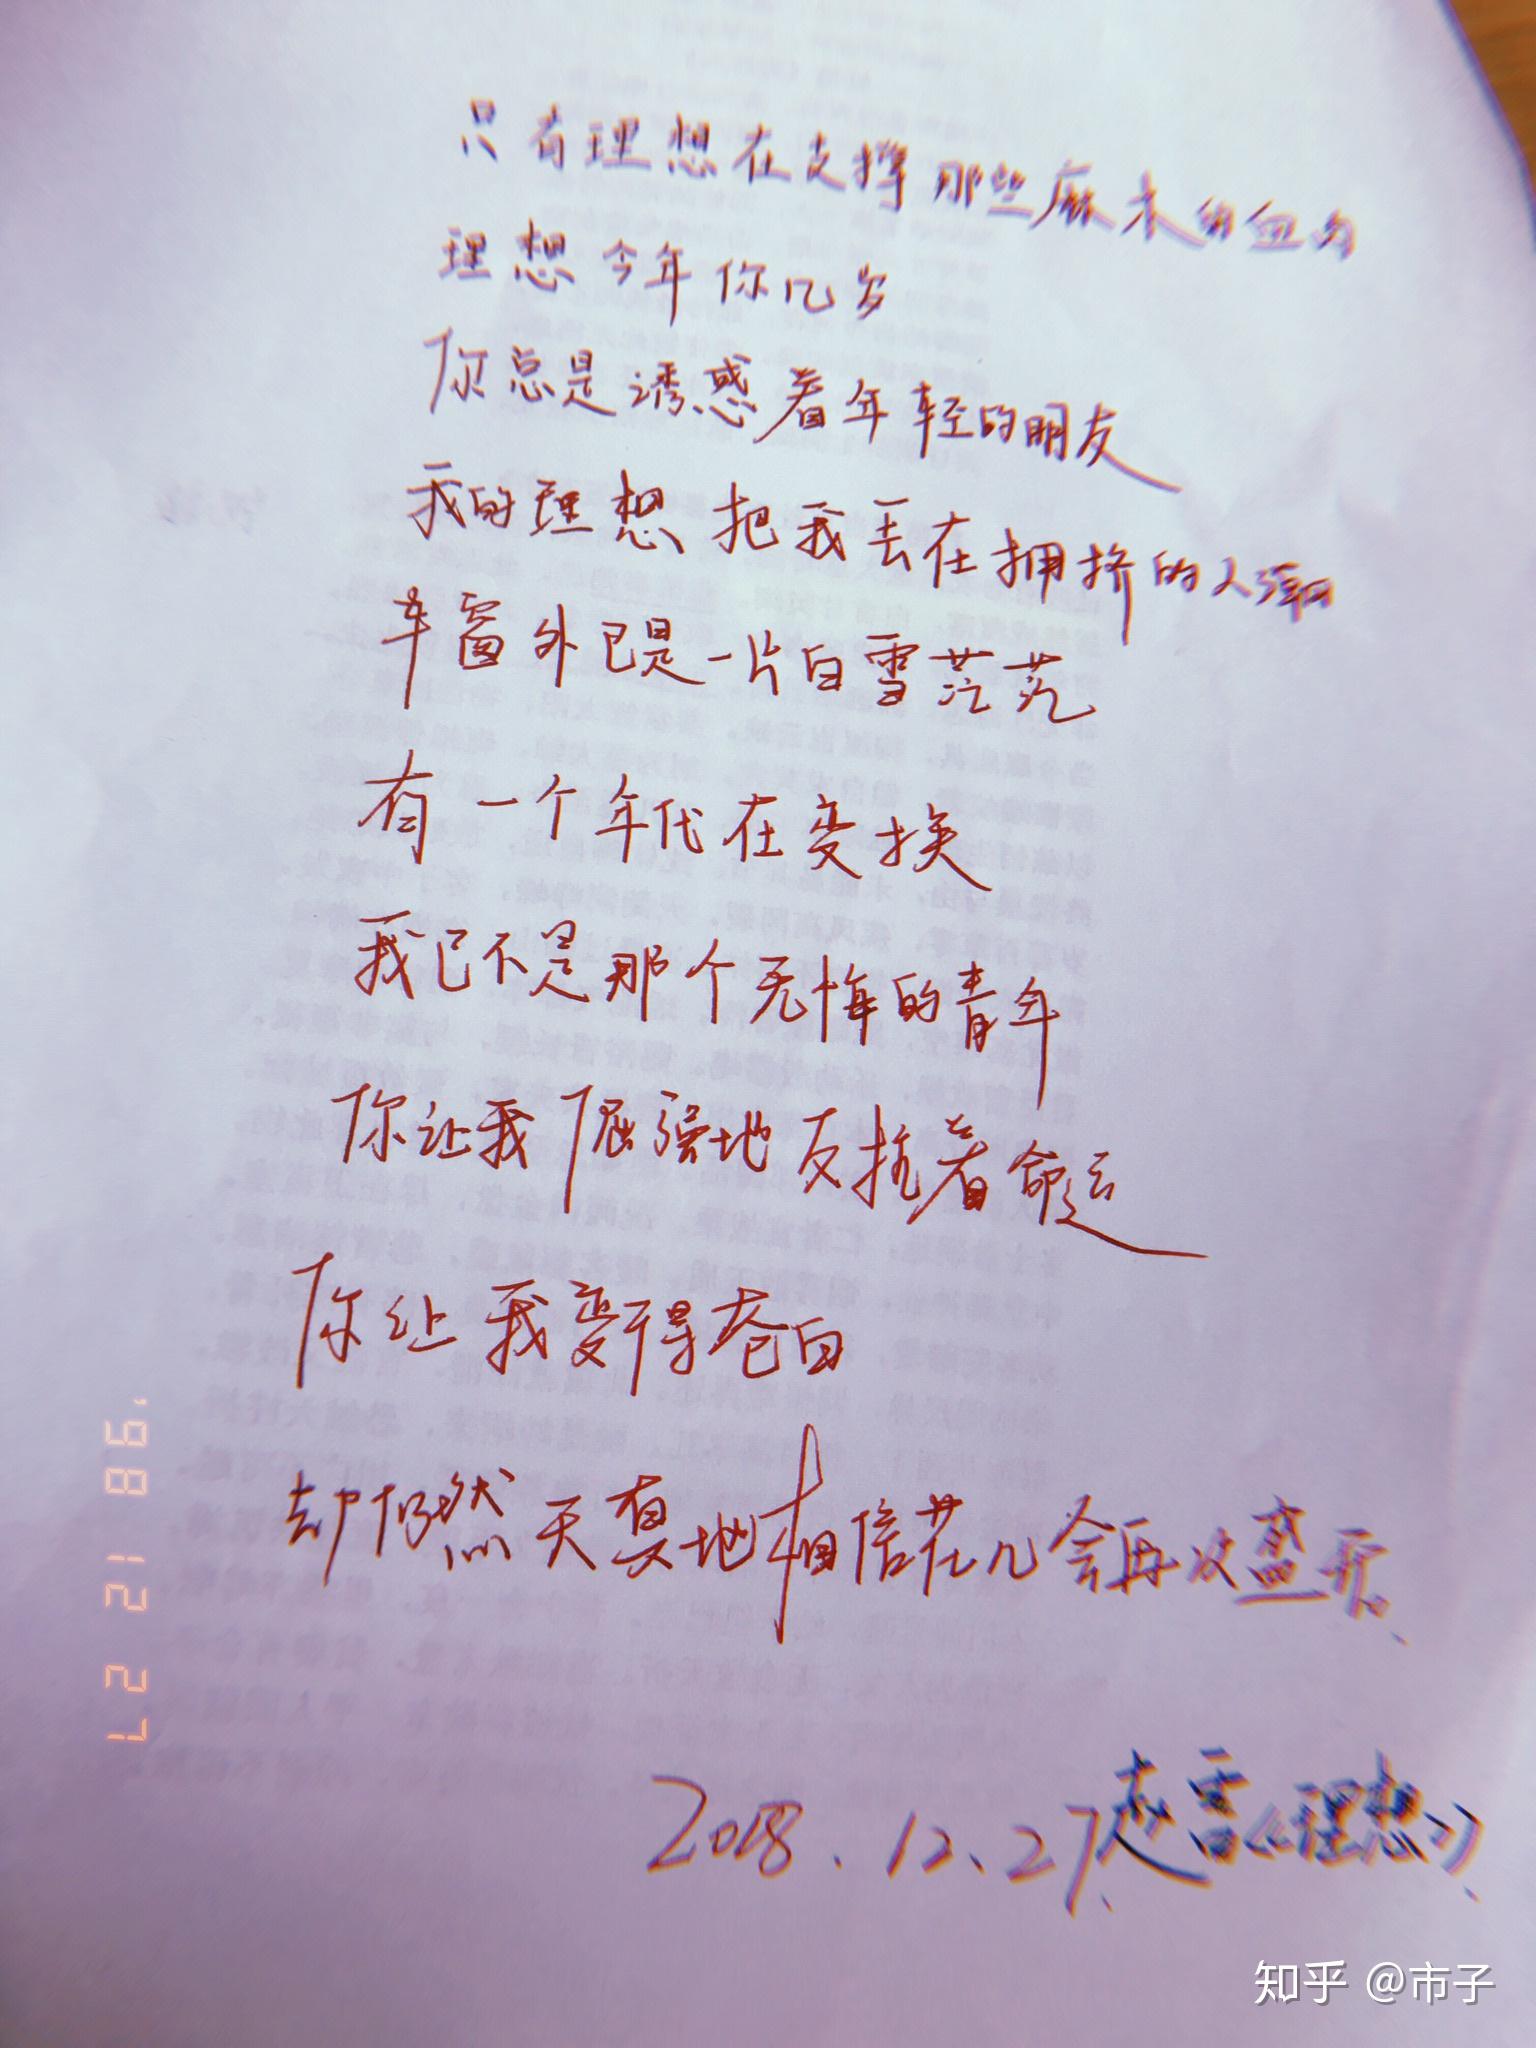 只有理想在支撑那些麻木的血肉
理想今年你几岁
你总是诱惑着年轻的朋友
我的理想把我丢在拥挤的人潮
车窗外已是一片白雪茫茫
有一个年代在变换
我已不是那个无悔的青年
你让我倔强地反抗着命运
你让我变得苍白
却仍然天真地相信花儿会再次盛开。
2018.12.27赵雷《理想》
'98 12 27
知乎 @市子